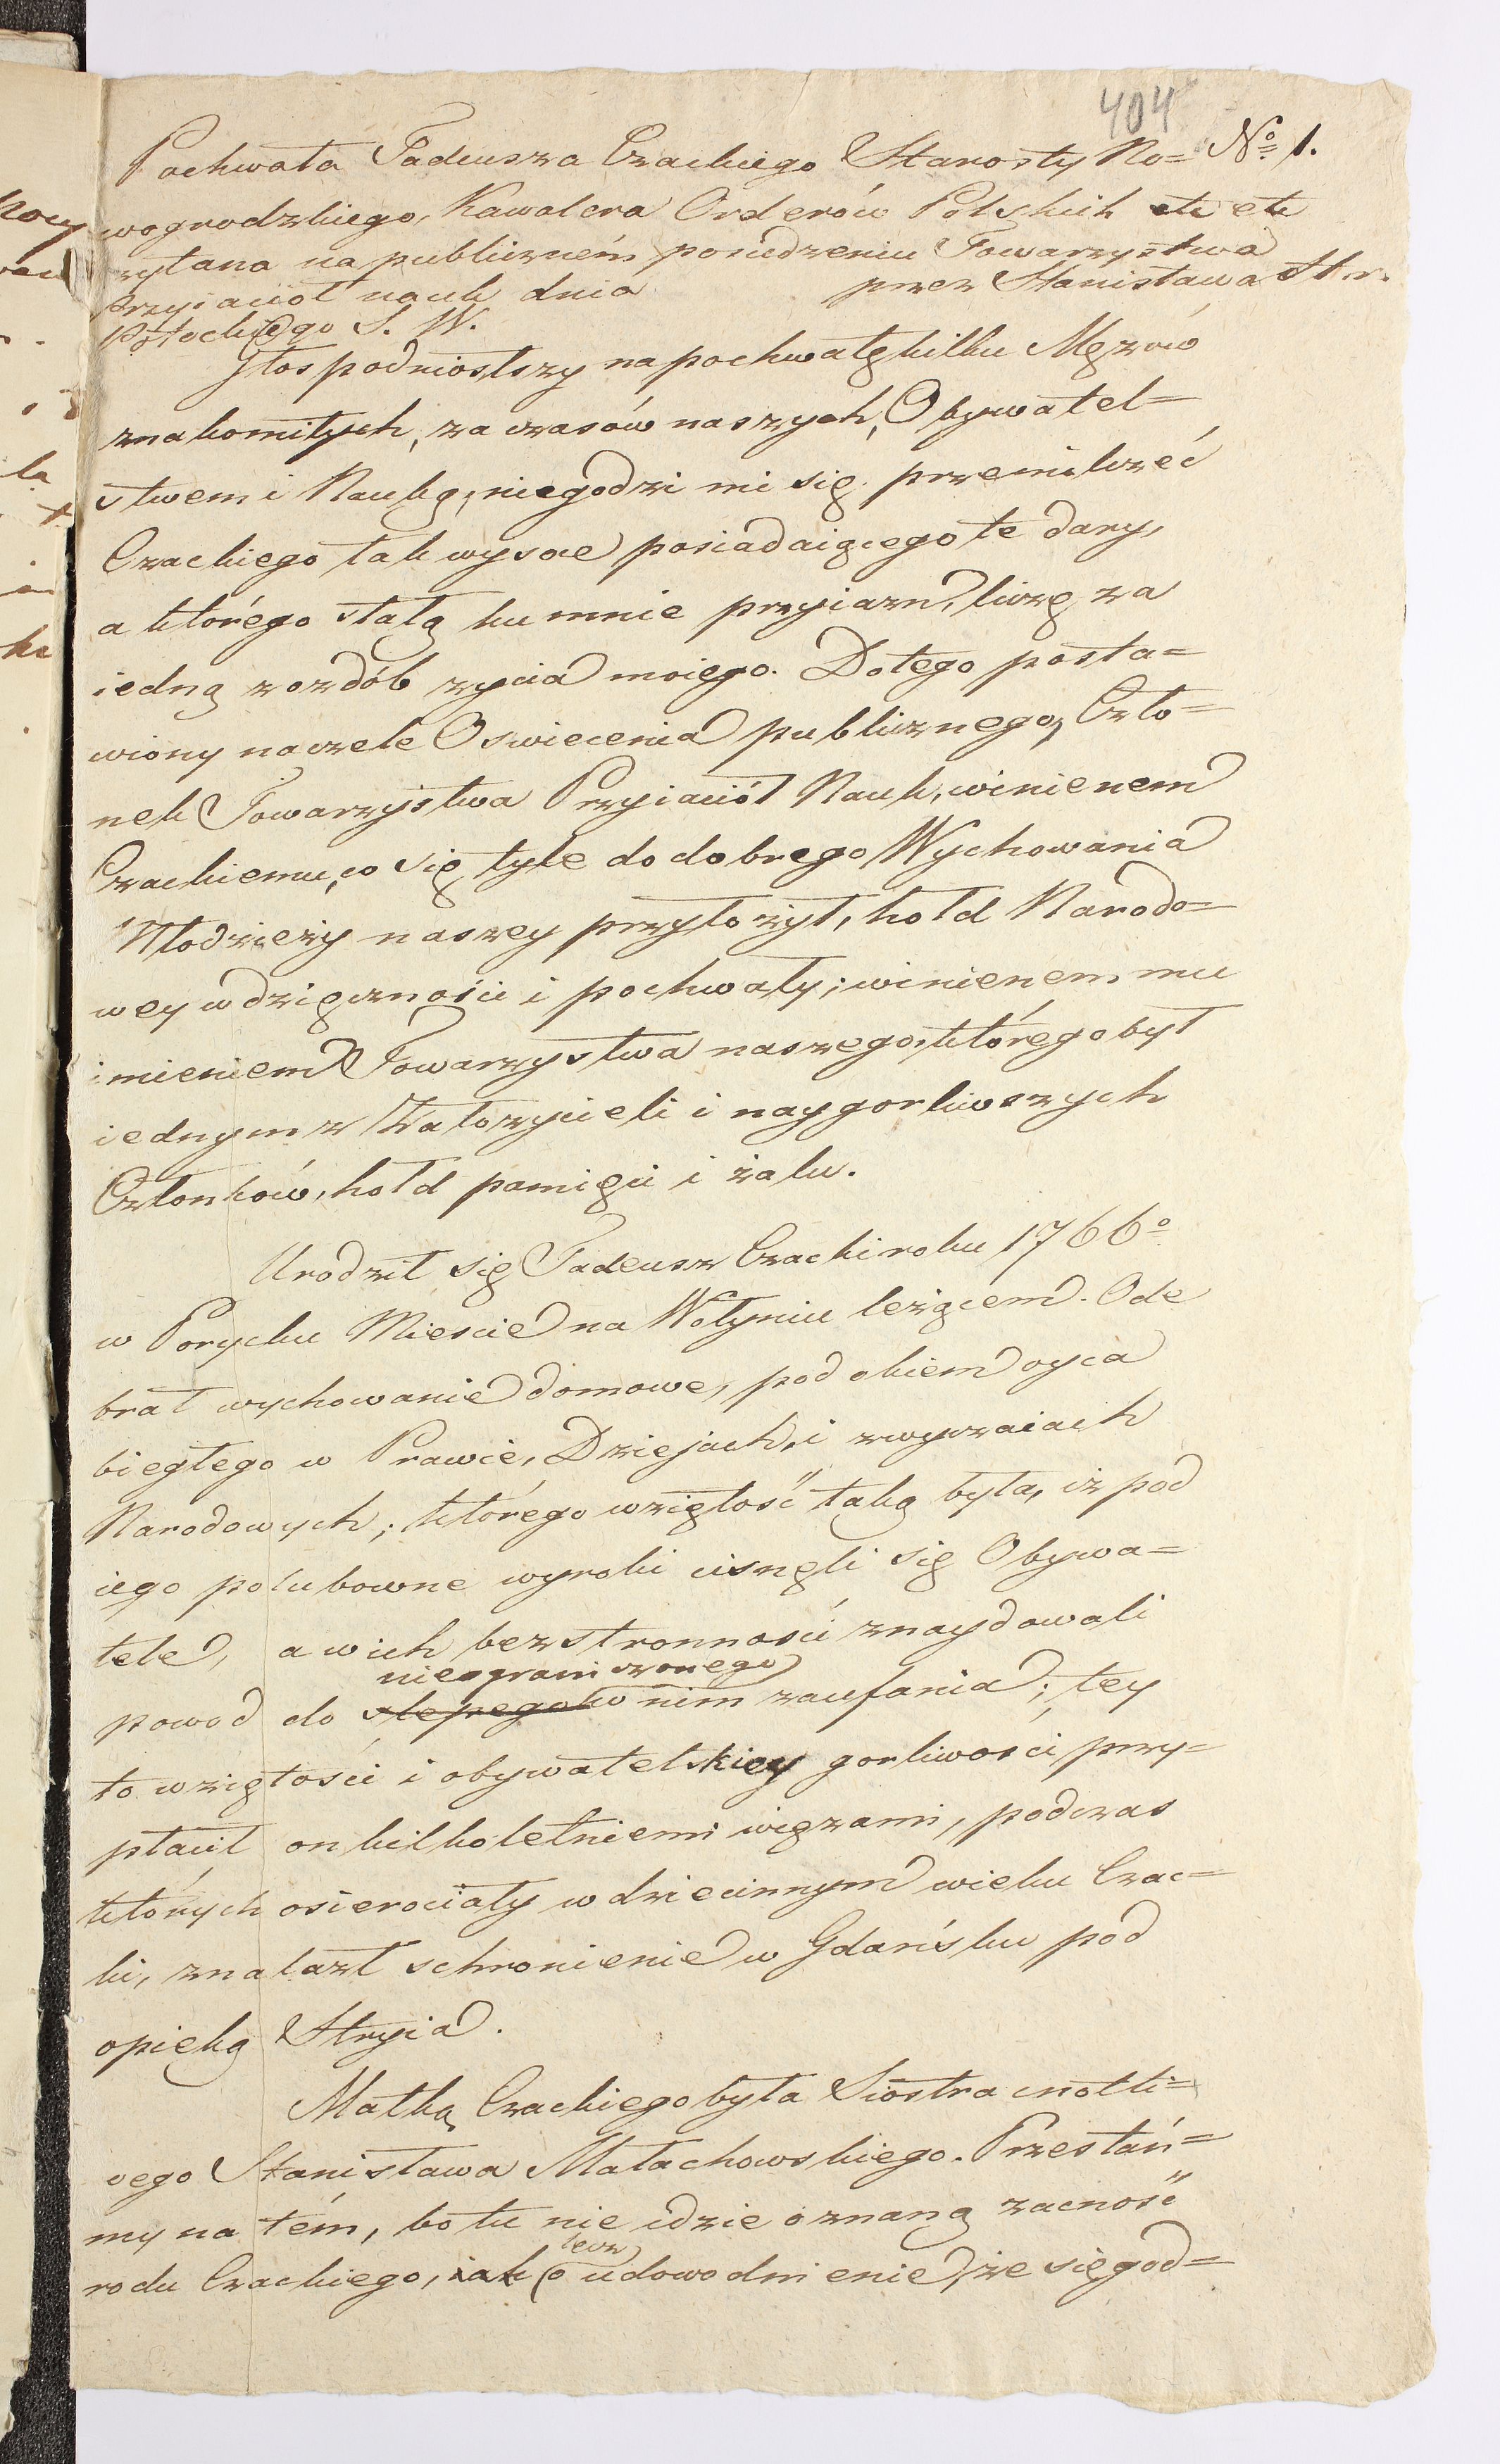 404
Pochwała Tadeusza Czackiego Starosty No= No 1.
wogrodzkiego, Kawalera Orderów Polskich etc etc
czytana na publiczném posiedzeniu Towarzystwa
Przyiaciół nauk dnia przez Stanisława Hr.
Potockiego S. W.
Głos podniosłszy na pochwałę kilku Mężów
znakomitych, za czasów naszych, Obywatel=
stwem i Nauką, niegodzi mi się przemilczeć
Czackiego tak wysoce posiadaiącego te dary,
a którego stałą ku mnie przyiazń, liczę za
iedną z ozdób zycia moiego. Dotego posta=
wiony naczele Oswiecenia publicznego, Czło=
nek Towarzystwa Przyiaciół Nauk, winienem
Czackiemu, co się tyle do dobrego Wychowania
Młodzieży naszey przyłożył, hołd Narodo=
wey wdzięcznośći i pochwały; winienem mu
imieniem Towarzystwa naszego, którego był
iednym z Założycieli i naygorliwszych
Członków, hołd pamięci i żalu.
Urodził się Tadeusz Czacki roku 1766o
w Porycku Miescie na Wołyniu leżącem. Ode
brał wychowanie domowe, pod okiem oyca
biegłego w Prawie, Dziejach, i zwyczaiach
Narodowych; którego wziętość taką była, iż pod
iego polubowne wyroki cisnęli się Obywa=
tele, a w ich bezstronności znaydowali
nieograniczonego
powod do slepego w nim zaufania; tey
to wziętości i obywatelskiey gorliwości przy=
płacił on kilkoletniemi więzami, podczas
których osierociały w dziecinnym wieku Czac=
ki, znalazł schronienie w Gdańsku pod
opieką Stryia.
Matką Czackiego była Siostra cnotli=
wego Stanisława Małachowskiego. Przestań=
my na tém, bo tu nie idzie o znaną zacność
lecz
rodu Czackiego, iak o udowodnienie, że się god=